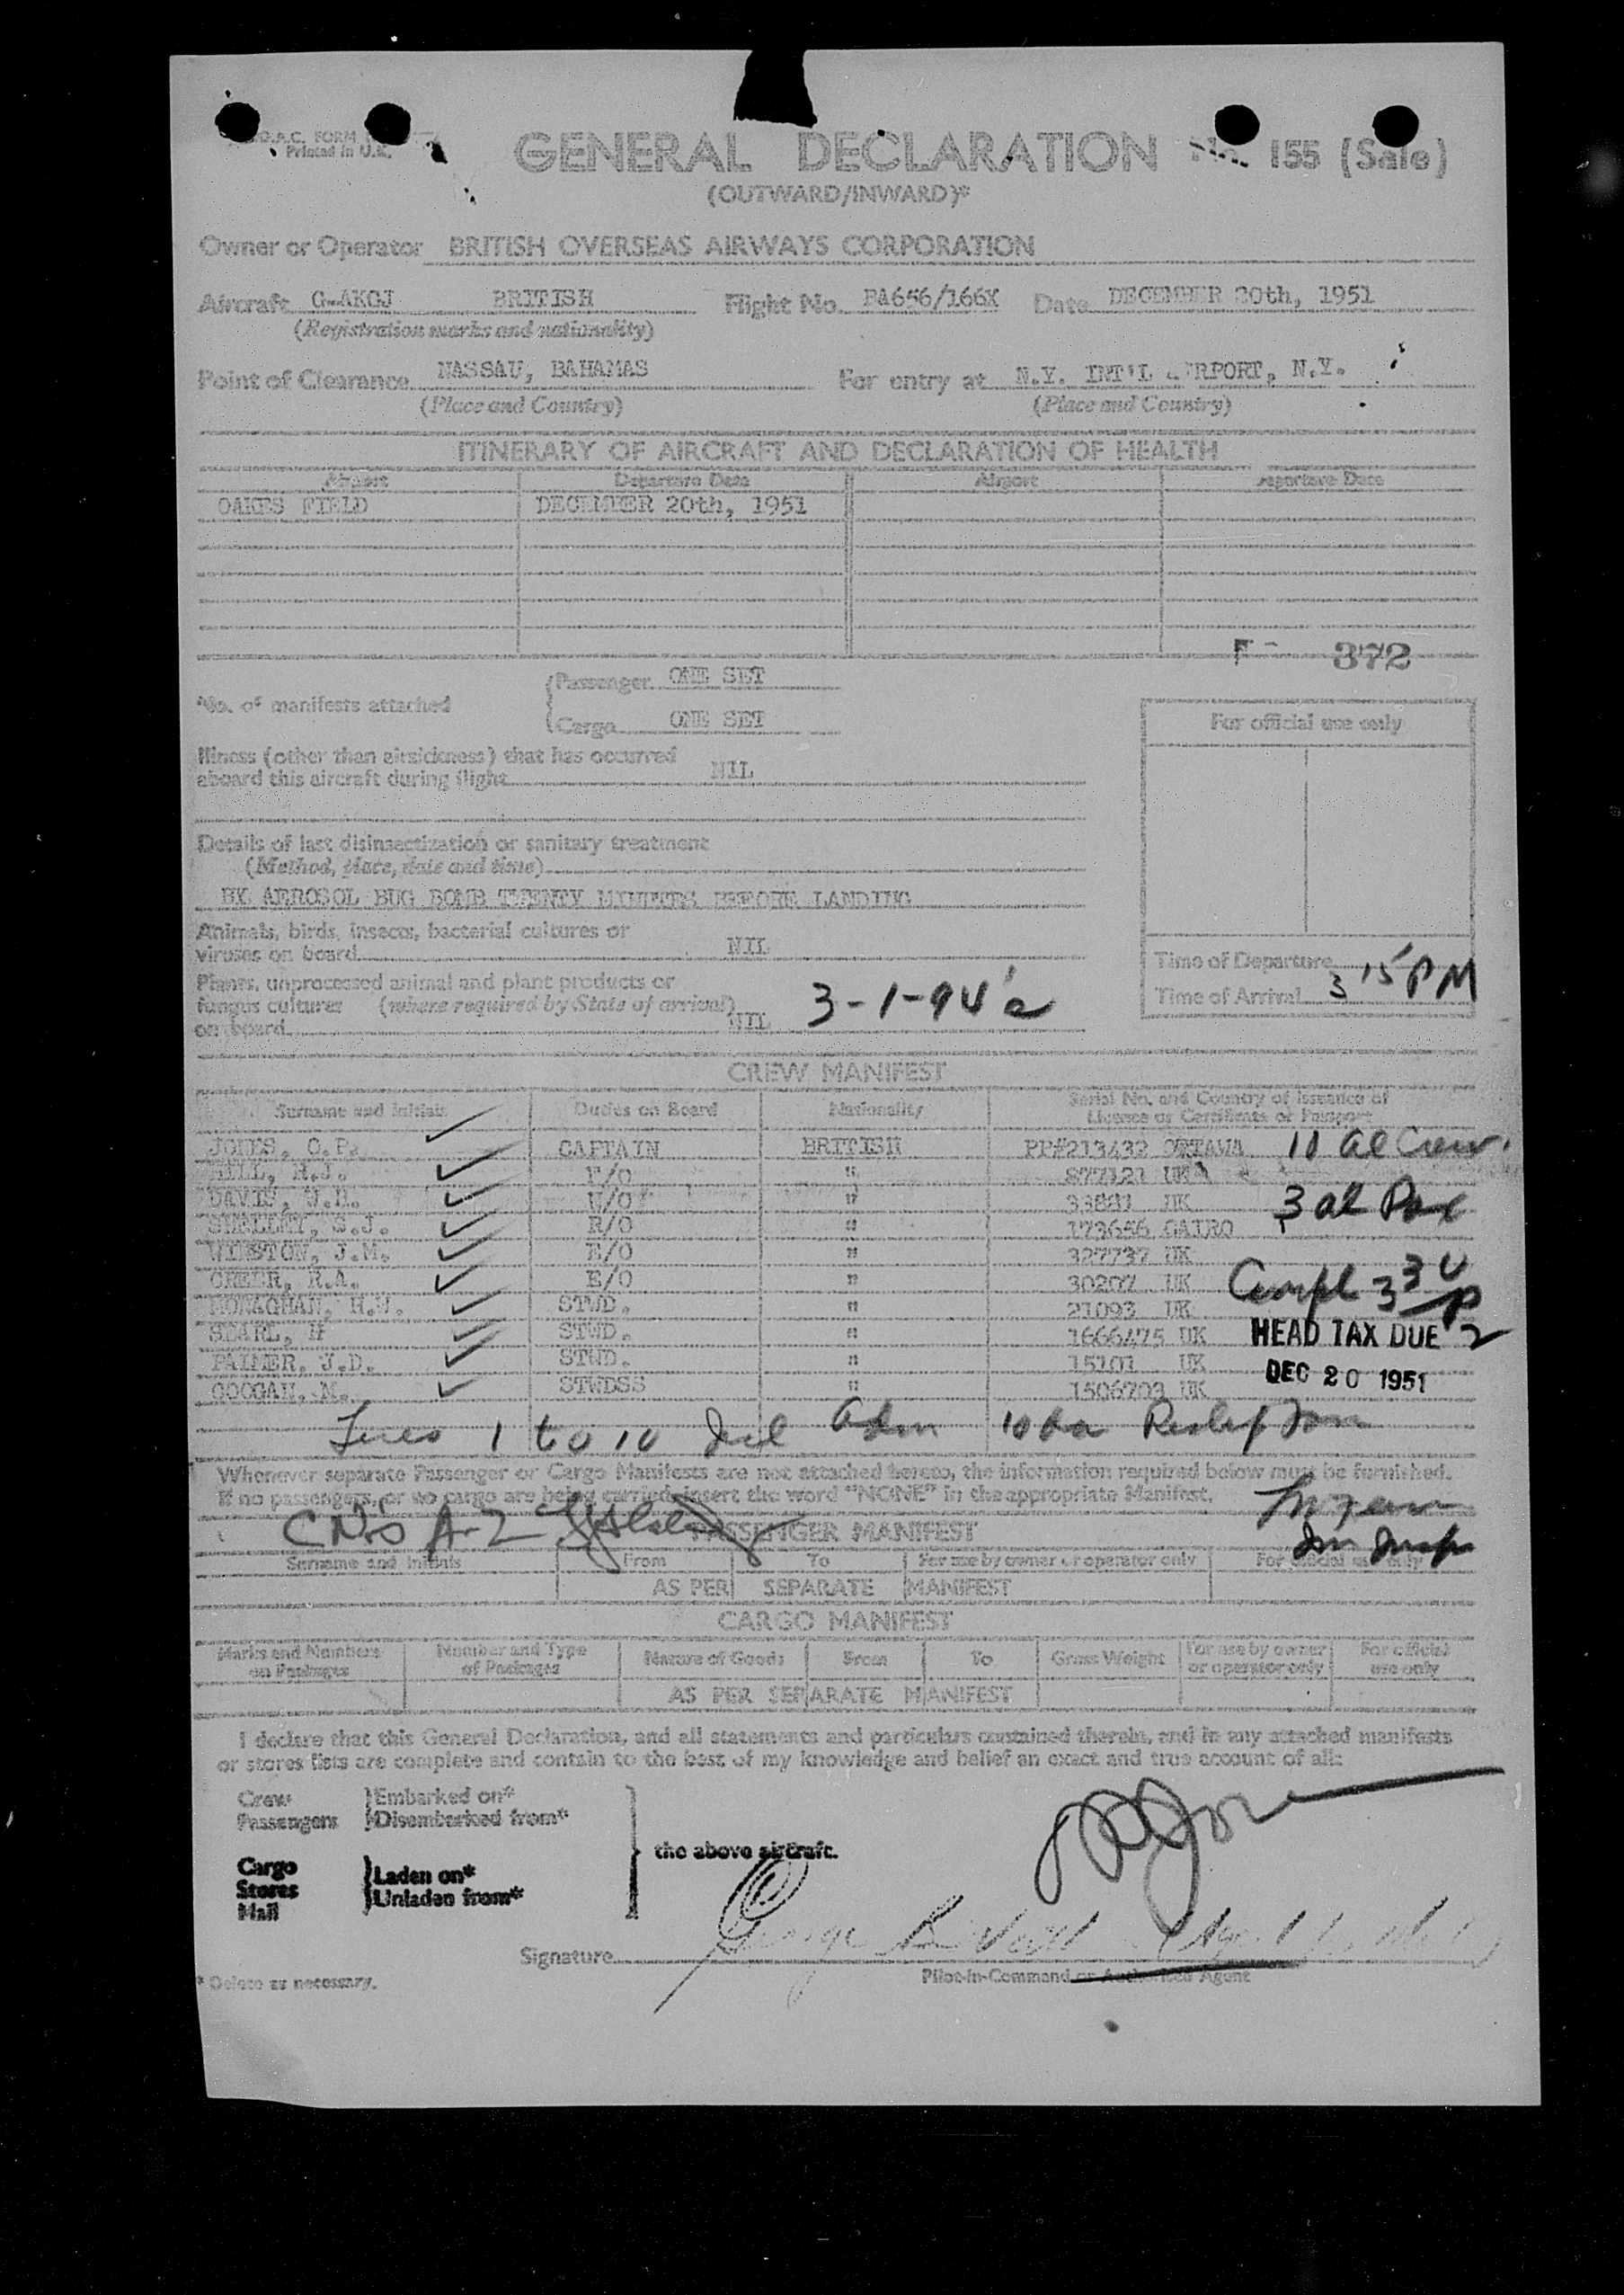 O.A.C. FORM
Printed in U.K.
GENERAL DECLARATION No. 155 (Sale)
(OUTWARD/INWARD)*
Owner or Operator BRITISH OVERSEAS AIRWAYS CORPORATION
Aircraft G-AKGJ BRITISH Flight No. BA656/166X Date DECEMBER 20th, 1951
(Registration marks and nationality)
Point of Clearance NASSAU, BAHAMAS For entry at N.Y. INT'L AIRPORT, N.Y.
(Place and Country) (Place and Country)
ITINERARY OF AIRCRAFT AND DECLARATION OF HEALTH
Airport Departure Date Airport Departure Date
OAKES FIELD DECEMBER 20th, 1951
F - 372
No. of manifests attached
Passenger ONE SET
Cargo ONE SET
For official use only
Illness (other than airsickness) that has occurred
aboard this aircraft during flight NIL
Details of last disinsectization or sanitary treatment
(Method, place, date and time)
BY AEROSOL BUG BOMB TWENTY MINUTES BEFORE LANDING
Animals, birds, insects, bacterial cultures or
viruses on board NIL
Time of Departure
Time of Arrival 3 15 PM
Plants, unprocessed animal and plant products or
fungus cultures (where required by State of arrival)
on board NIL 3-1-94
CREW MANIFEST
Surname and Initials Duties on Board Nationality Serial No. and Country of Issuance of
Licence or Certificate or Passport
JONES, O.P. CAPTAIN BRITISH PP#213432 OTTAWA 10 al Crew.
HILL, H.J. F/O " 877121 UK
DAVIS, J.H. " 33881 UK 3 al Pax
SHELLEY, S.J. R/O " 173656 CAIRO
WINSTON, J.M. E/O " 327737 UK
GREER, R.A. E/O " 30207 UK Compl 3 30 P
MONAGHAN, H.W. STWD. " 21093 UK
SEARL, STWD. " 1666475 UK HEAD TAX DUE 2
PALMER, J.D. STWD. " 15101 UK DEC 20 1951
COOGAN, M. STWDSS " 1506703 UK
Lines 1 to 10 Incl Adm 10
Whenever separate Passenger or Cargo Manifests are not attached hereto, the information required below must be furnished.
If no passengers, or no cargo are being carried, insert the word "NONE" in the appropriate Manifest.
A-2
Imm Insp
PASSENGER MANIFEST
Surname and Initials From To For use by owner or operator only For official use only
AS PER SEPARATE MANIFEST
CARGO MANIFEST
Marks and Numbers on Packages Number and Type of Packages Nature of Goods From To Gross Weight For use by owner or operator only For official use only
AS PER SEPARATE MANIFEST
I declare that this General Declaration, and all statements and particulars contained therein, and in any attached manifests
or stores lists are complete and contain to the best of my knowledge and belief an exact and true account of all:
Crew Embarked on*
Passengers Disembarked from*
the above aircraft.
Cargo
Stores Laden on*
Mail Unladen from*
OPJones
Signature George
Pilot-in-Command or Authorised Agent
* Delete as necessary.